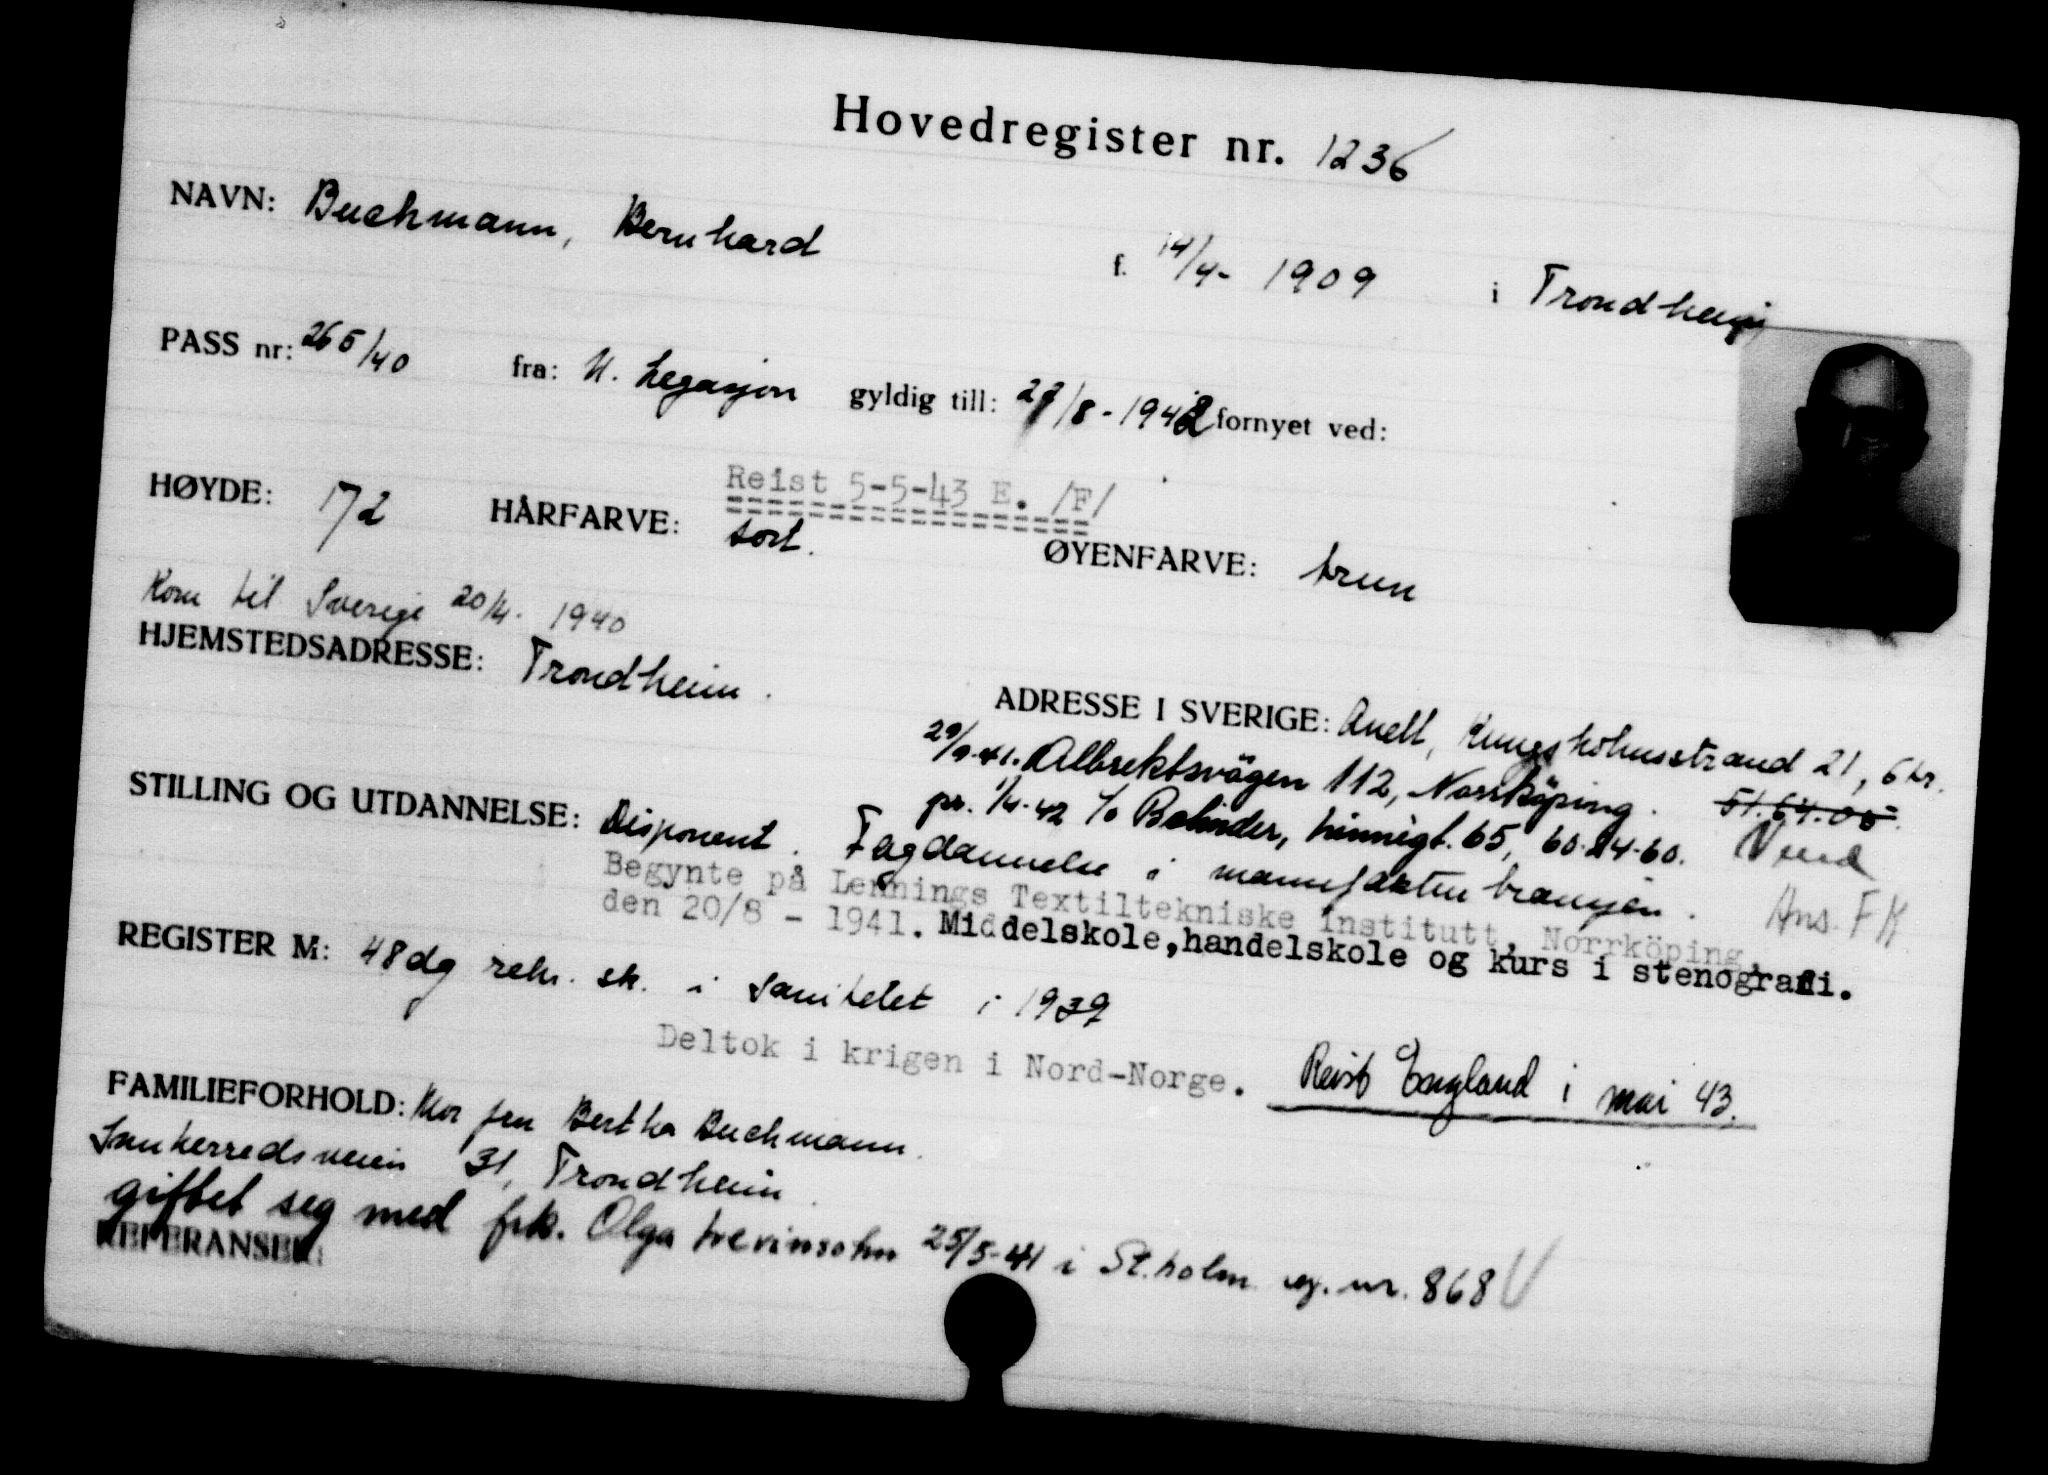 Hovedregister nr. 1236
NAVN: Buchmann, Bernhard f. 14/4- 1909 i Trondheim
PASS nr: 265/40 fra: N. Legasjon gyldig till: 27/8-1942 fornyet ved:
Reist 5-5-43 E. /F/
HØYDE: 172 HÅRFARVE: sort. ØYENFARVE: brun
Kom til Sverige 20/4. 1940
HJEMSTEDSADRESSE: Trondheim.
ADRESSE I SVERIGE: Anell, Kungsholmsstrand 21, 6 tr.
29/9-41. Albrektsvägen 112, Norrköping. 51.64.05.
pr. 1/4-42 c/o Bolinder, 65, 60.24.60.
STILLING OG UTDANNELSE: Disponent. Fagdannelse i manufakturbransjen.
Begynte på Lennings Textiltekniske Institutt, Norrköping,
den 20/8 - 1941. Middelskole, handelskole og kurs i stenografi.
Ans. F K
REGISTER M: 48 dg rekr. sk. i Sanitetet i 1939
Deltok i krigen i Nord-Norge. Reist England i mai 43.
FAMILIEFORHOLD: Mor fru Bertha Buchmann.
31, Trondheim.
giftet seg med frk. Olga Levinsohn 25/5-41 i St.holm reg. nr. 868 V
REFERANSER: